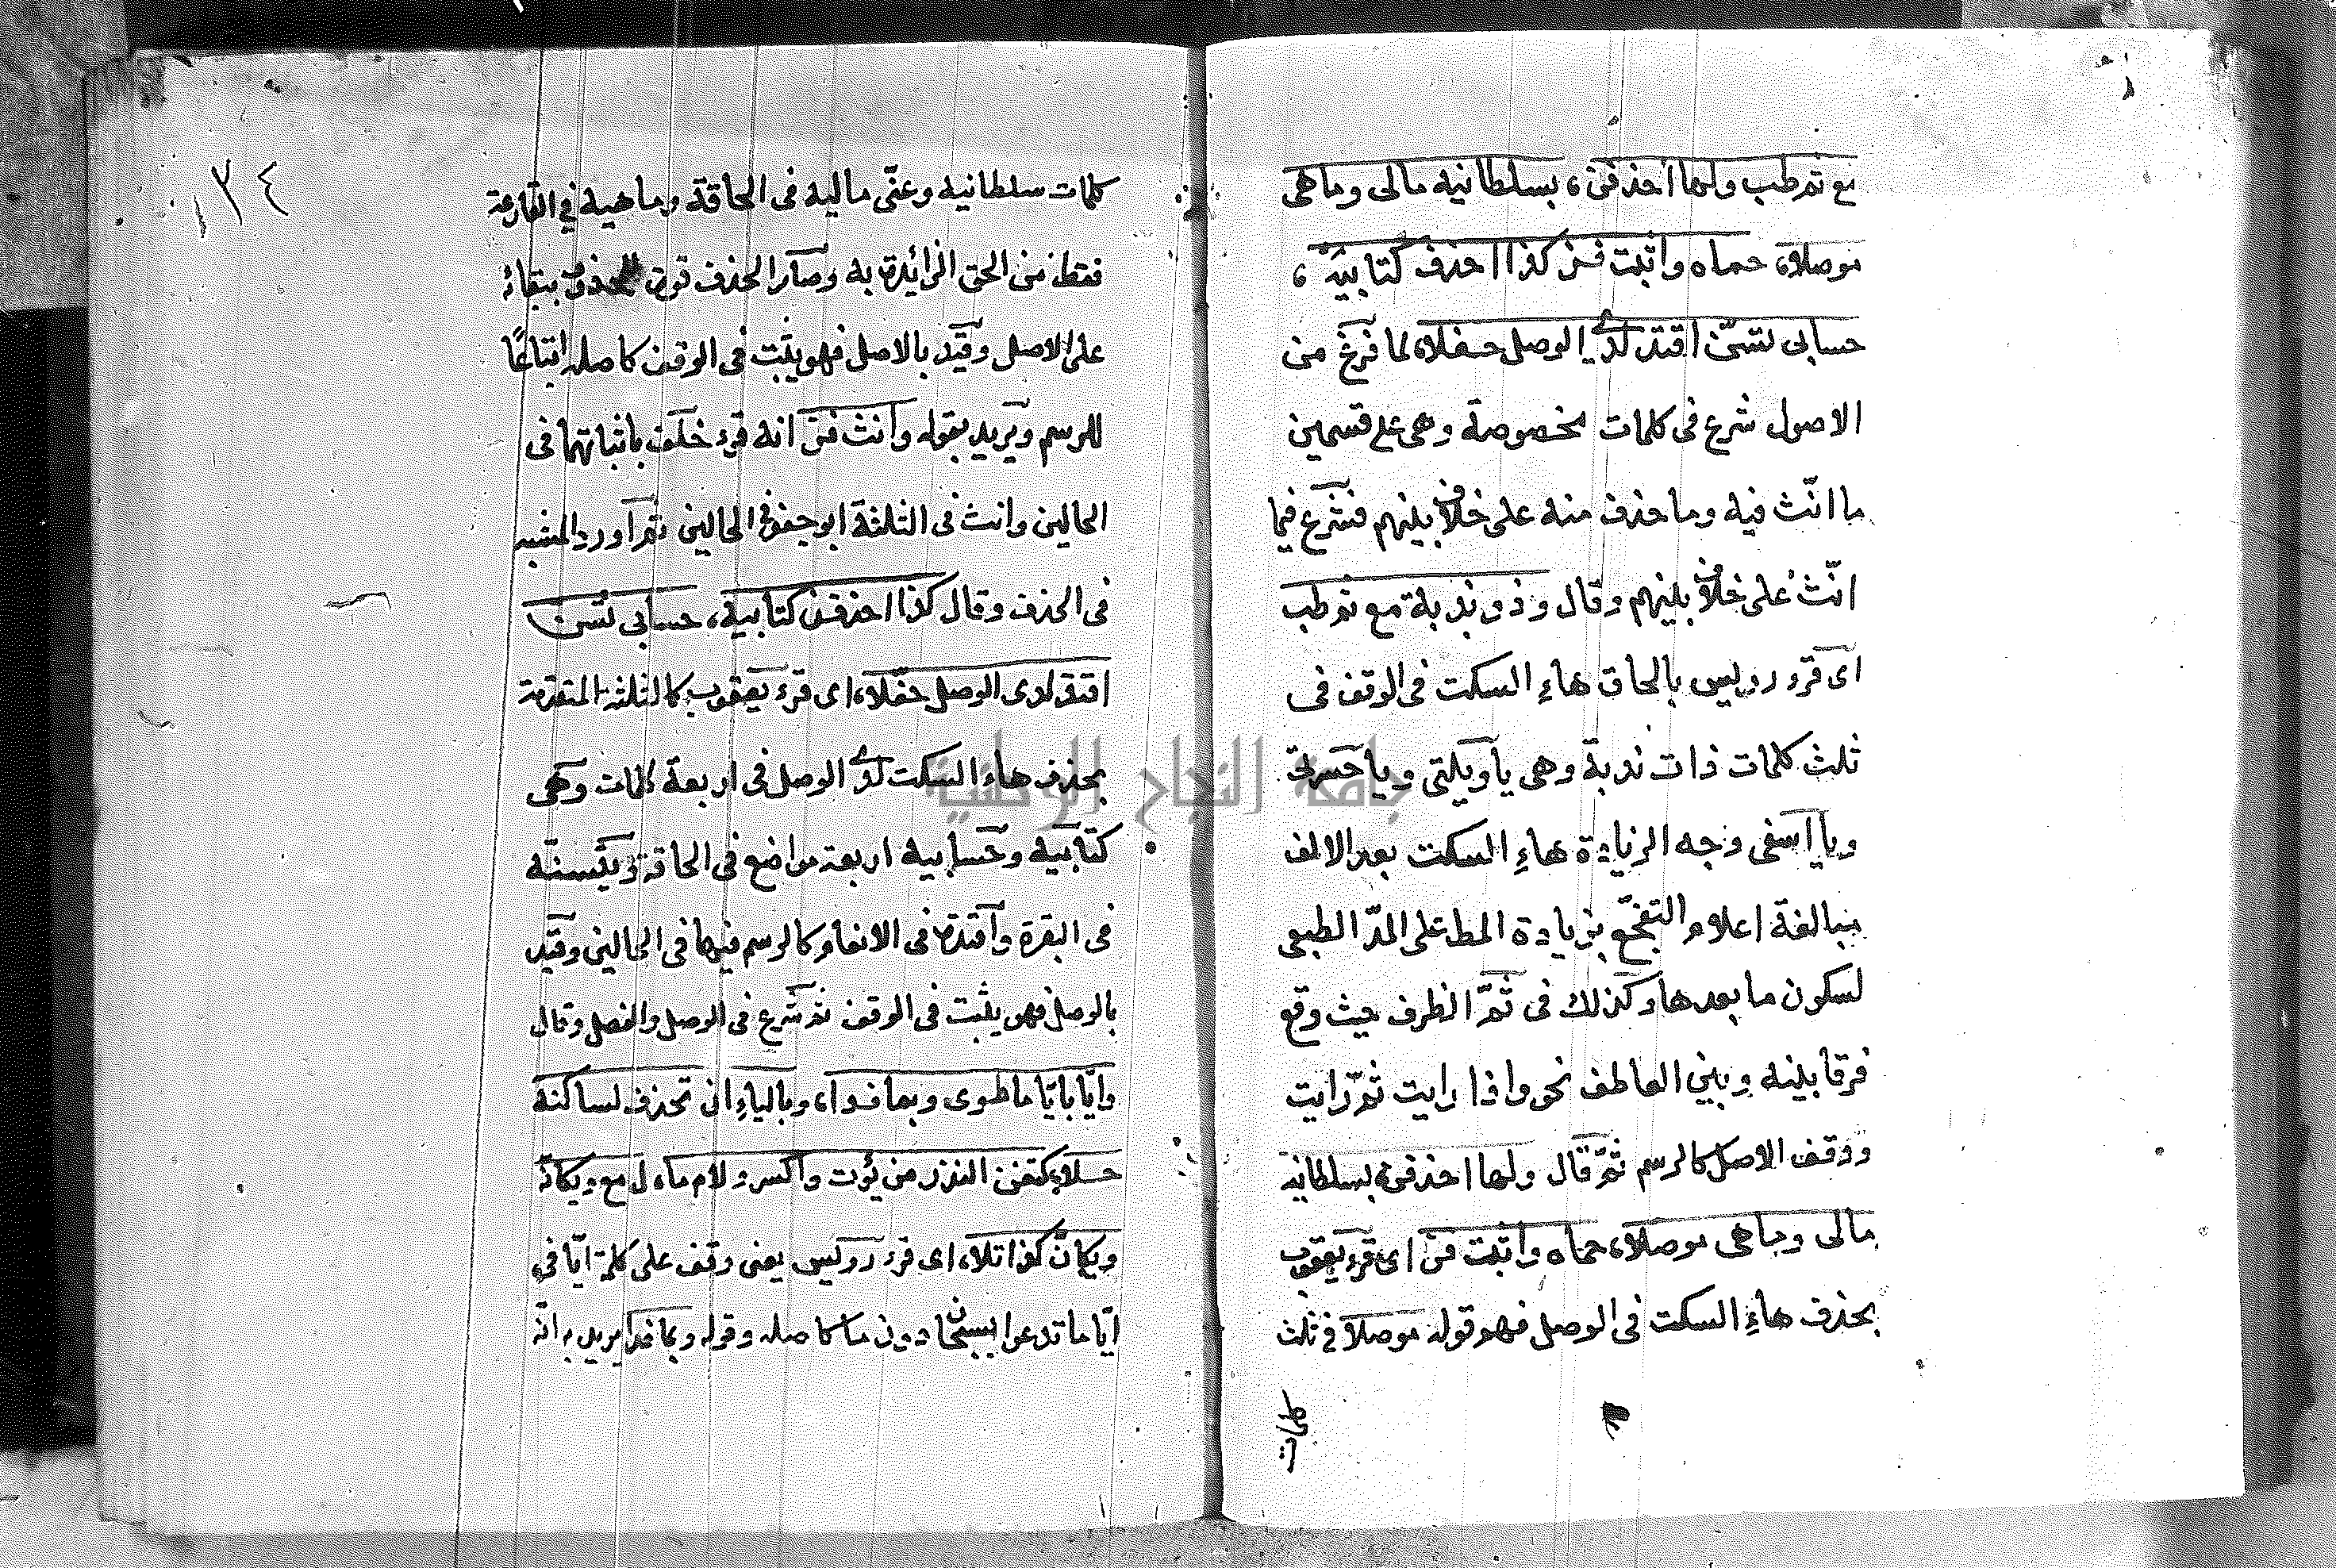 مع ثم طب ولها احذفن، بسلطانيه مالى وماهى
موصلا، حماه واثبت فز كذا احذف كتابيه،
حسابى تسنّ اقتد لدى الوصل حفلا، لما فرغ من
الاصول شرع فى كلمات مخصوصة وهى على قسمين
ما اثبت فيه وما حذف منه على خلاف بينهم فشرع فيما
اثبت على خلاف بينهم وقال وذو ندبة مع ثم طب
اى قرء رويس بالحاق هاءِ السكت فى الوقف فى
ثلث كلمات ذات ندبة وهى ياويلتى وياحسرتى
ويااسفى وجه الزيادة هاءِ السكت بعد الالف
مبالغة اعلام التفجّع بزيادة المط على المدّ الطبعى
لسكون ما بعدها وكذلك فى ثَمّ الظرف حيث وقع
فرقا بينه وبين العاطف نحو واذا رايت ثمّ رايت
ووقف الاصل كالرسم ثمّ قال ولها احذفن بسلطانيه
مالى وماهى موصلا، حماه واثبت فز اى قرء يعقوب
بحذف هاءِ السكت فى الوصل فهو قوله موصلا فى ثلث
كلمات
١٣٤
كلمات سلطانيه وعنّى ماليه فى الحاقة وماهيه فى القارعة
فقط من الحق الزائدة به وصار الحذف قوة ببقائه
على الاصل وقيّد بالاصل فهو يثبت فى الوقف كاصله اتباعًا
للرسم ويريد بقوله واثبت فز انه قرء خلف باثباتهما فى
الحالين واثبت فى الثلثة ابو جعفر فى الحالين ثم اورد المشبه
فى الحذف وقال كذا احذفن كتابيه، حسابى تسن
اقتد لدى الوصل حفّلا، اى قرء يعقوب كالثلثة المتقدمة
بحذف هاء السكت لدى الوصل فى اربعة كلمات وهى
كتابيه وحسابيه اربعة مواضع فى الحاقة ويتسنّه
فى البقرة واقتده فى الانعام كالرسم فيهما فى الحالين وقيّد
بالوصل فهو يثبت فى الوقف ثم شرع فى الوصل والفصل وقال
وايّا بايّا ما طوى وبما فدا، وبالياءِ ان تحذف لساكنه
حلا، كتغن النذر من يؤت واكسر ولام ما، ل مع ويكانّه
ويكانّ كذا تلا، اى قرء رويس يعنى وقف على كلمة ايّا فى
ايّا ما تدعوا بسبحان دون ما كاصله وقوله وبما فدا يريد به انّه